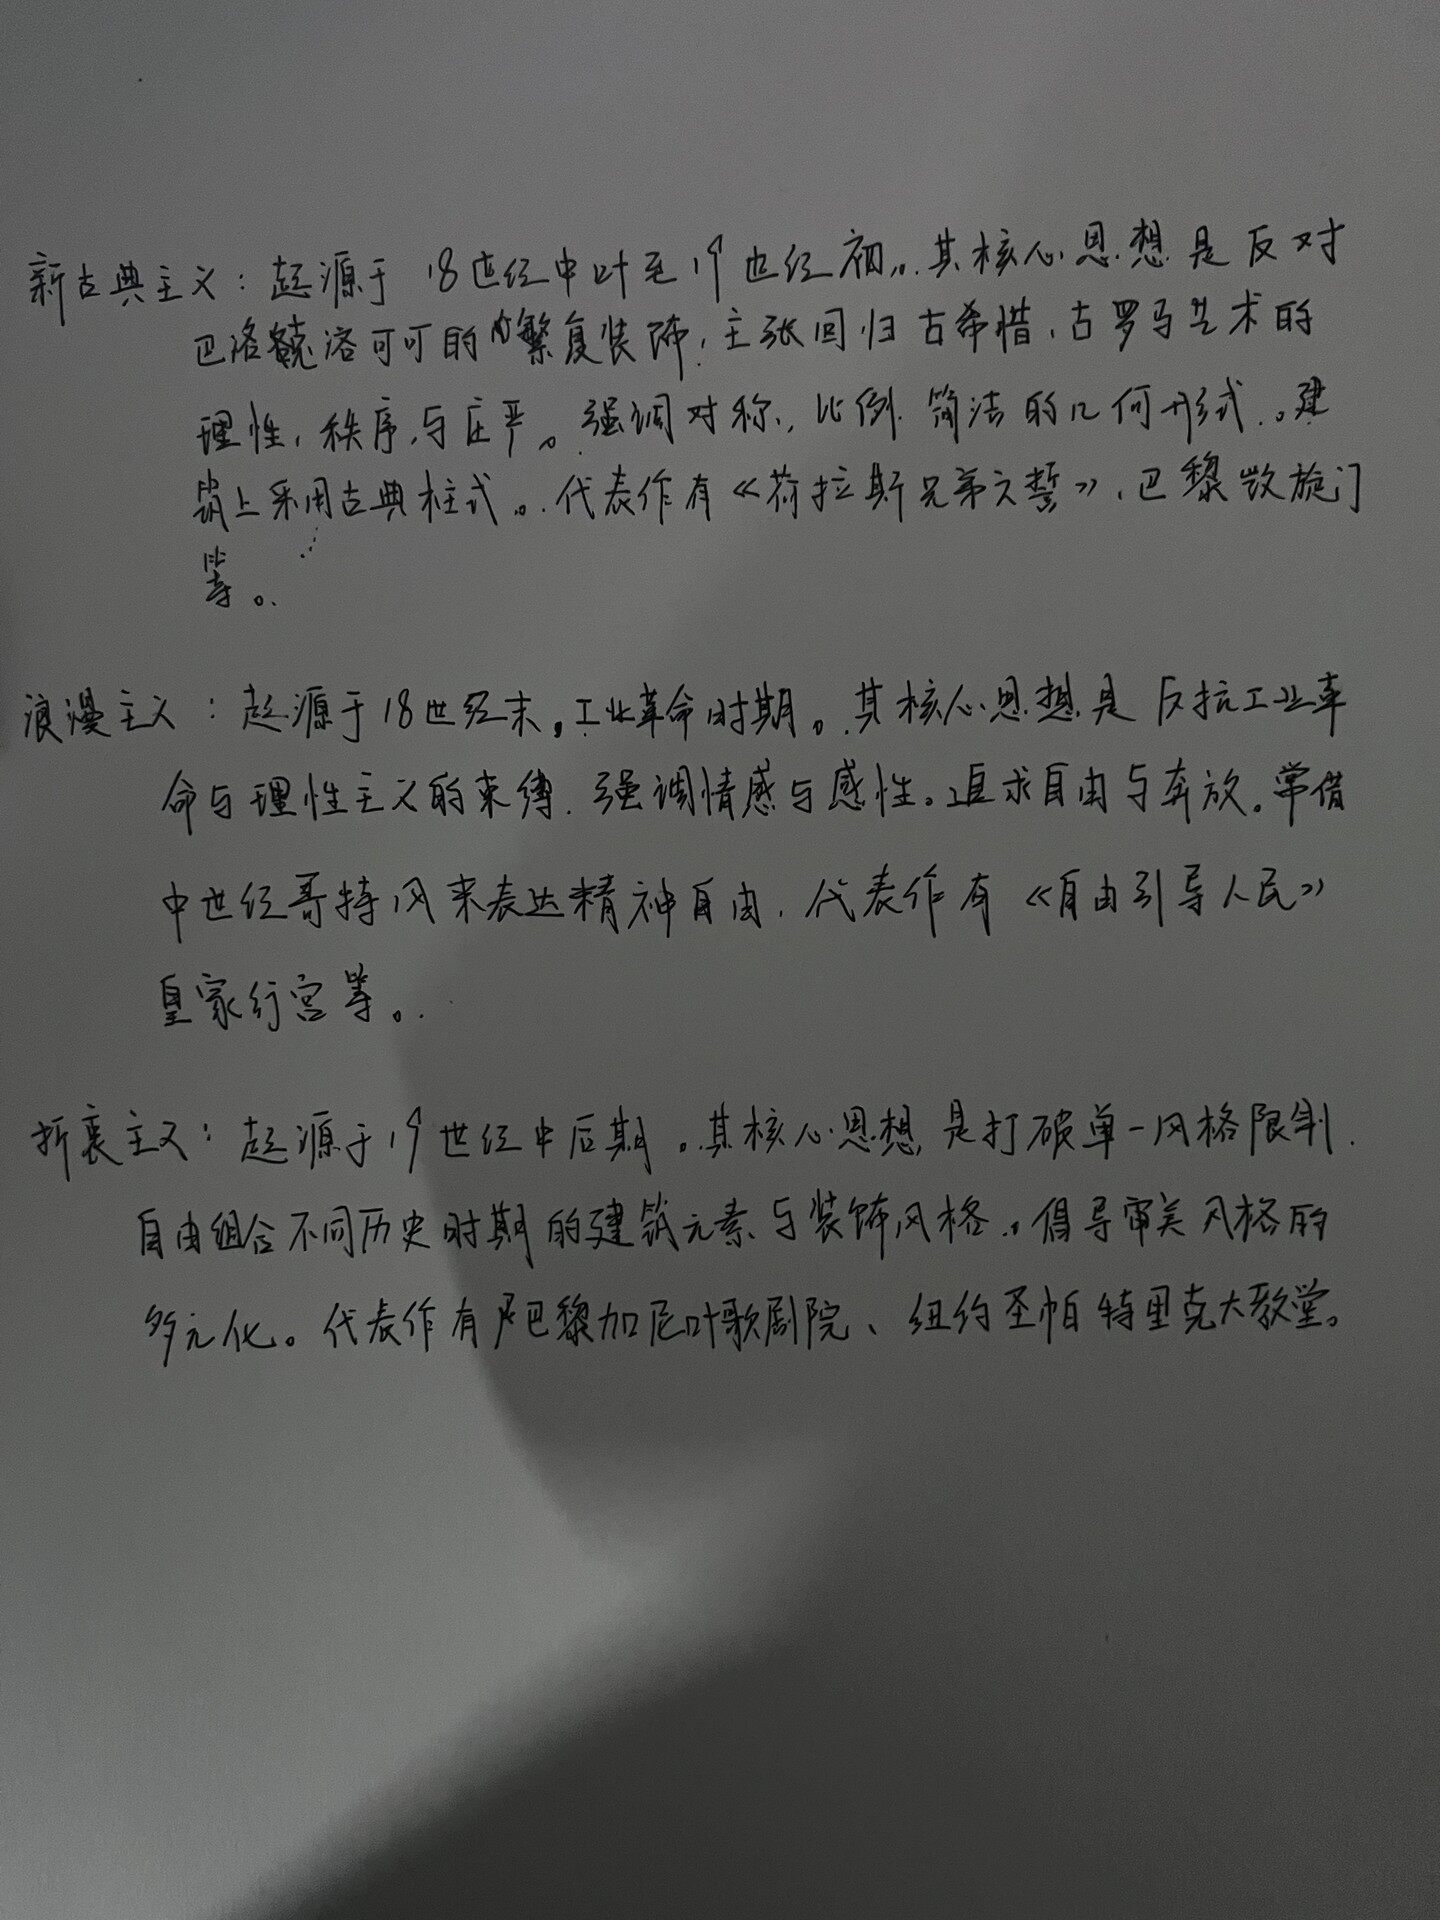 新古典主义：起源于18世纪中叶至19世纪初。其核心思想是反对
巴洛克洛可可的繁复装饰，主张回归古希腊、古罗马艺术的
理性，秩序，与庄严。强调对称，比例，简洁的几何形式。建
筑上采用古典柱式。代表作有《荷拉斯兄弟之誓》、巴黎凯旋门
等。
浪漫主义：起源于18世纪末，工业革命时期。其核心思想是反抗工业革
命与理性主义的束缚，强调情感与感性。追求自由与奔放。常借
中世纪哥特风来表达精神自由，代表作有《自由引导人民》
皇家行宫等。
折衷主义：起源于19世纪中后期。其核心思想是打破单一风格限制，
自由组合不同历史时期的建筑元素与装饰风格。倡导审美风格的
多元化。代表作有巴黎加尼叶歌剧院、纽约圣帕特里克大教堂。